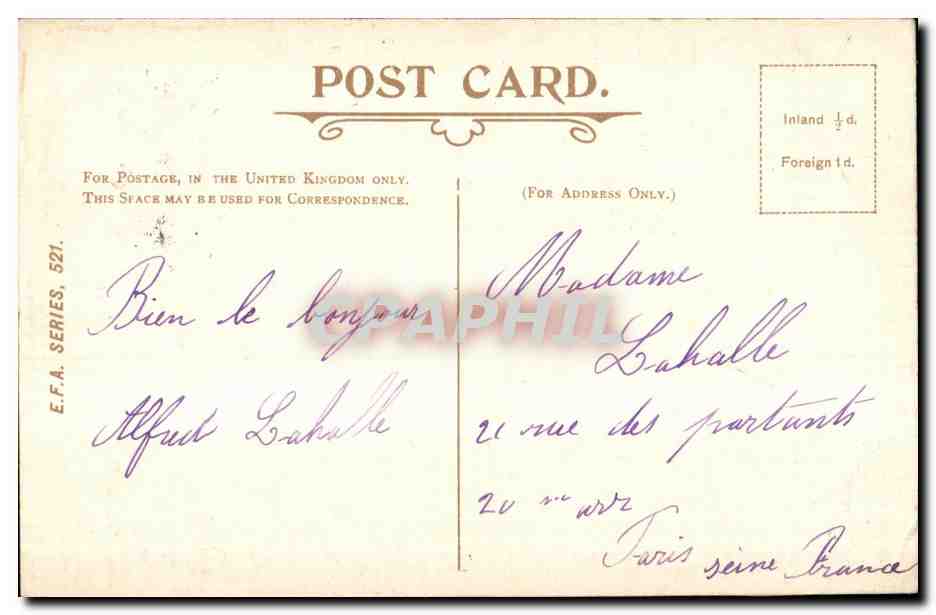 POST CARD.
Inland ½d.
Foreign 1d.
FOR POSTAGE, IN THE UNITED KINGDOM ONLY.
THIS SPACE MAY BE USED FOR CORRESPONDENCE.
(FOR ADDRESS ONLY.)
E.F.A. SERIES, 521.
Bien le bonjour
Alfred Lahalle
CPAPHIL
Madame
Lahalle
rue des partants
20 me arr
Paris seine France